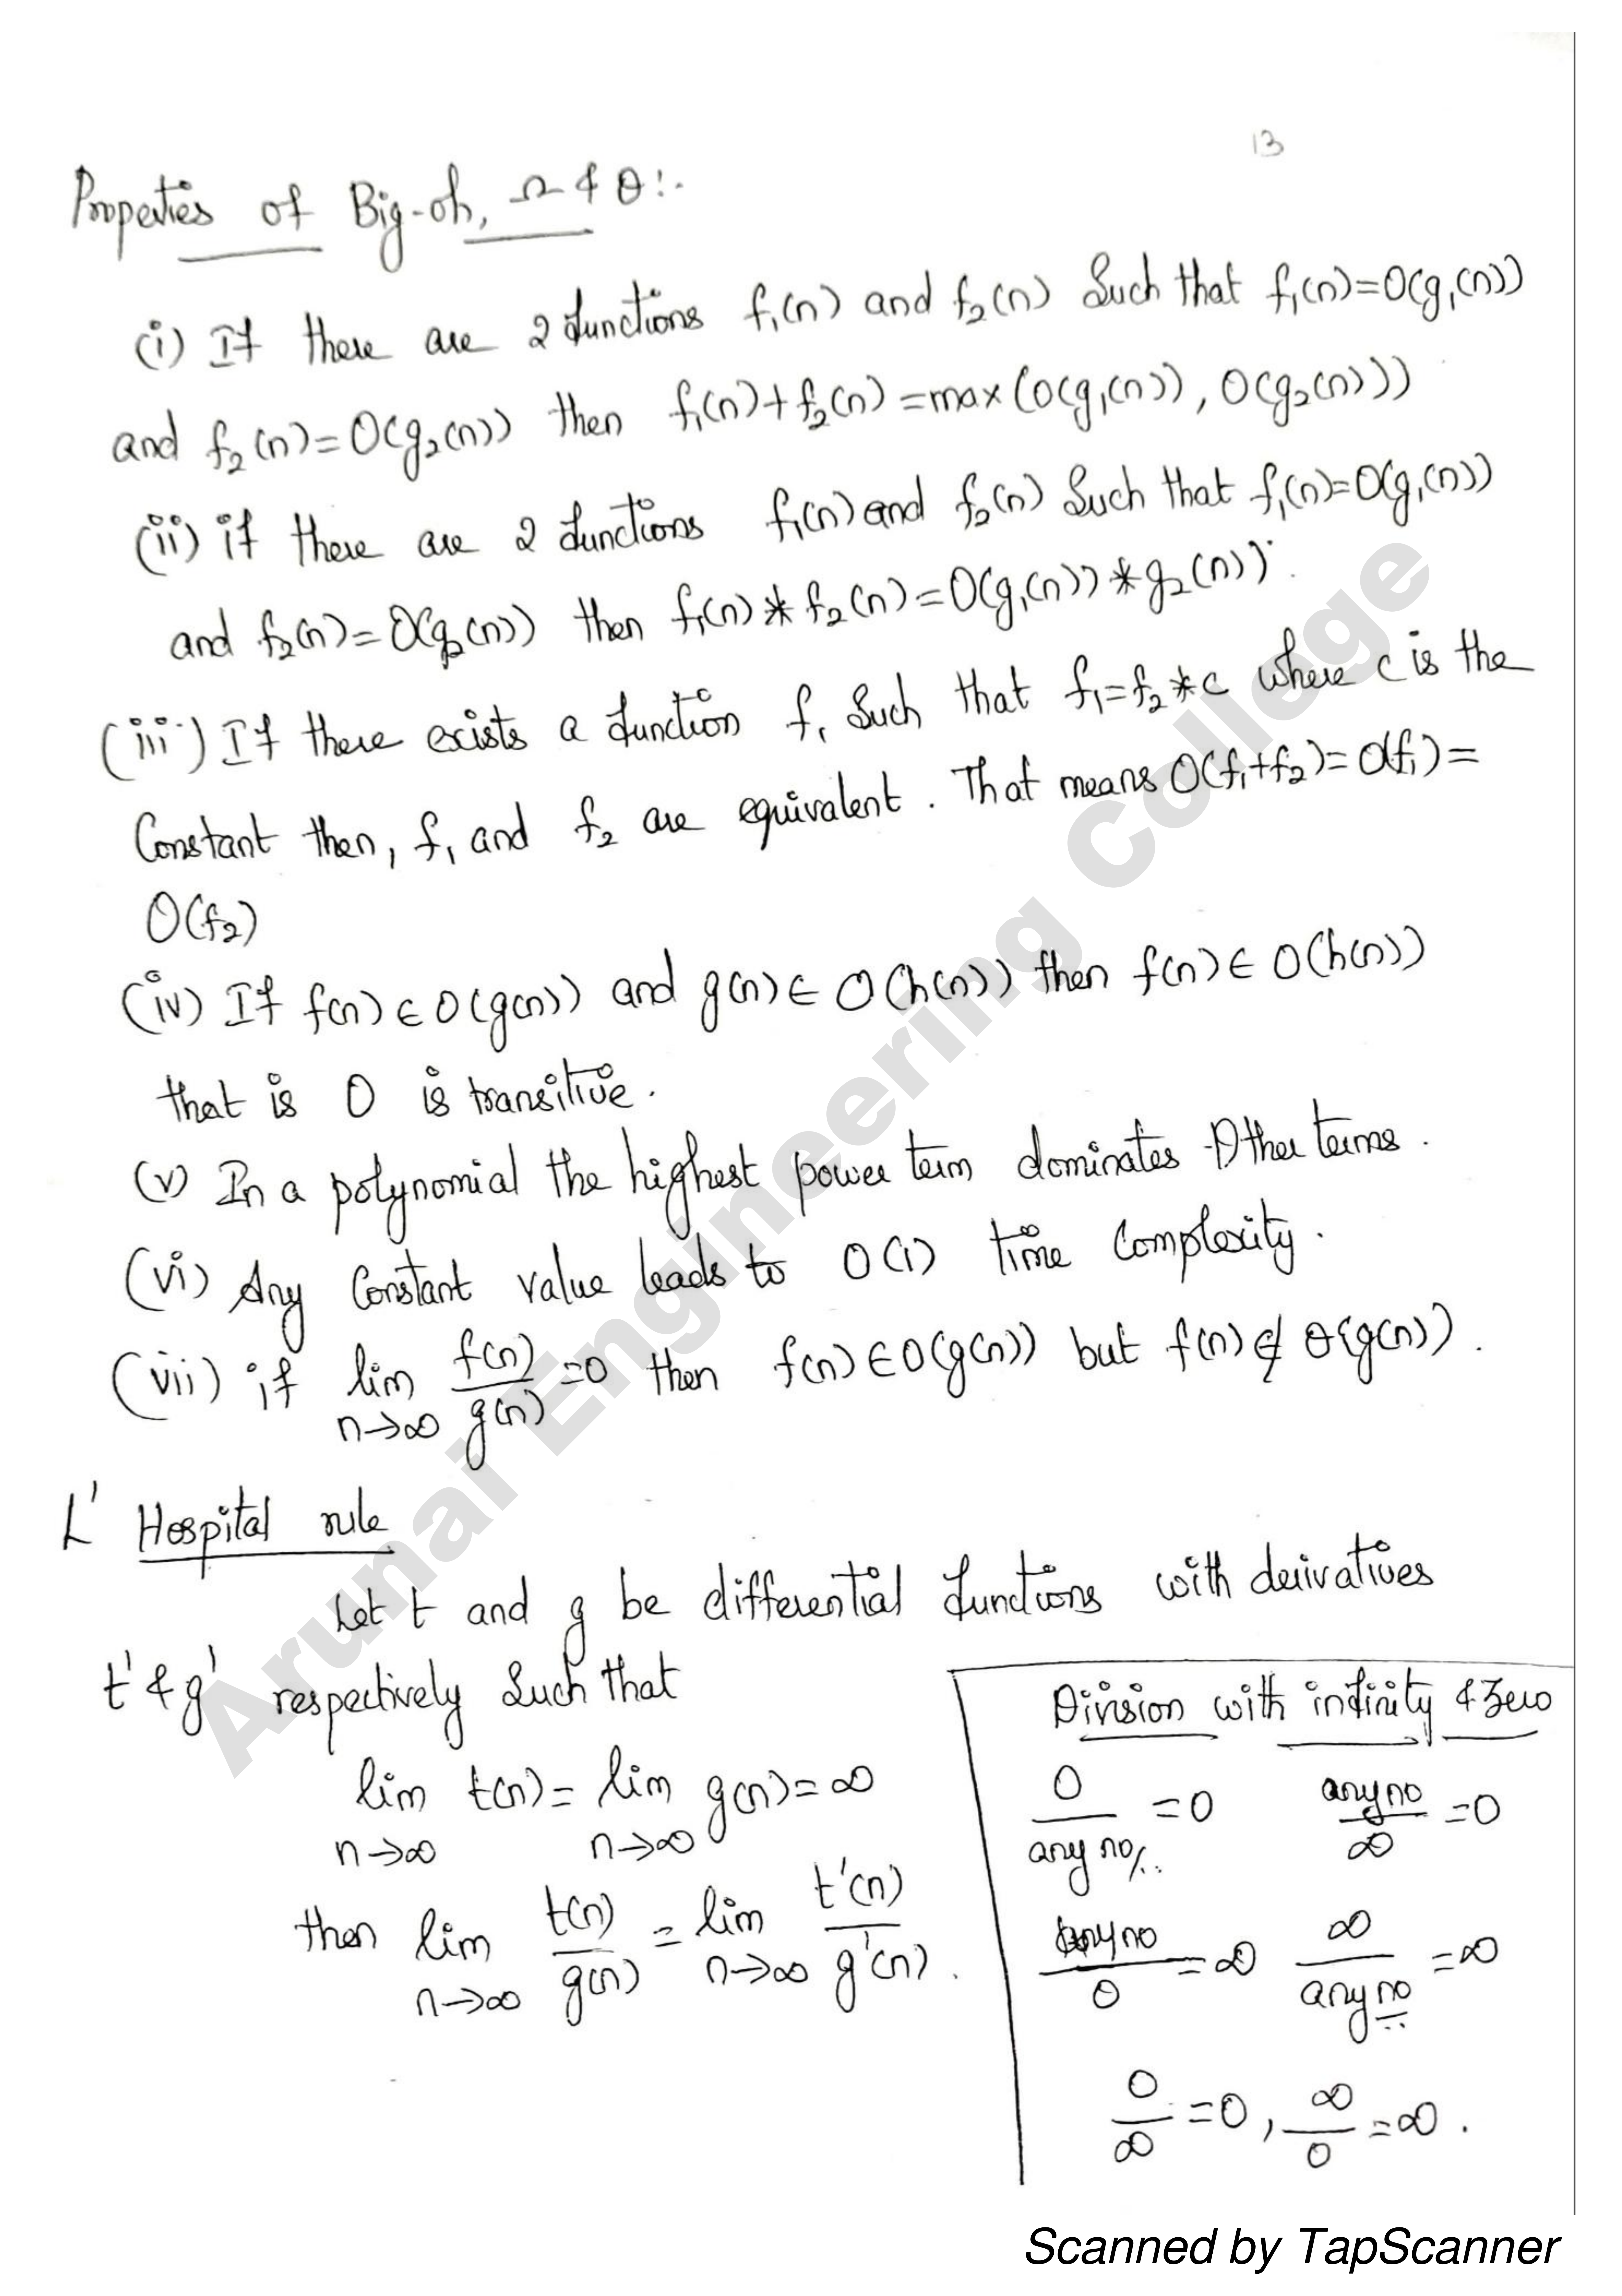 13
Properties of Big-oh, Ω & θ:-
(i) If there are 2 functions f₁(n) and f₂(n) Such that f₁(n)=O(g₁(n))
and f₂(n)=O(g₂(n)) then f₁(n)+f₂(n)=max(O(g₁(n)), O(g₂(n)))
(ii) if there are 2 functions f₁(n) and f₂(n) Such that f₁(n)=O(g₁(n))
and f₂(n)=O(g₂(n)) then f₁(n)*f₂(n)=O(g₁(n))*g₂(n)).
(iii) If there exists a function f₁ Such that f₁=f₂*c where c is the
Constant then, f₁ and f₂ are equivalent. That means O(f₁+f₂)=O(f₁)=
O(f₂)
(iv) If f(n)∈O(g(n)) and g(n)∈O(h(n)) then f(n)∈O(h(n))
that is O is transitive.
(v) In a polynomial the highest power term dominates Other terms.
(vi) Any Constant value leads to O(1) time Complexity.
(vii) if lim n→∞ f(n)/g(n) =0 then f(n)∈O(g(n)) but f(n)∉θ(g(n)).
L' Hospital rule
Let t and g be differential functions with derivatives
t' & g' respectively Such that
lim n→∞ t(n)= lim n→∞ g(n)=∞
then lim n→∞ t(n)/g(n) = lim n→∞ t'(n)/g'(n).
Division with infinity & Zero
0/any no. =0 any no/∞ =0
any no/0 =∞ ∞/any no =∞
0/∞ =0, ∞/0 =∞.
Arunai Engineering College
Scanned by TapScanner